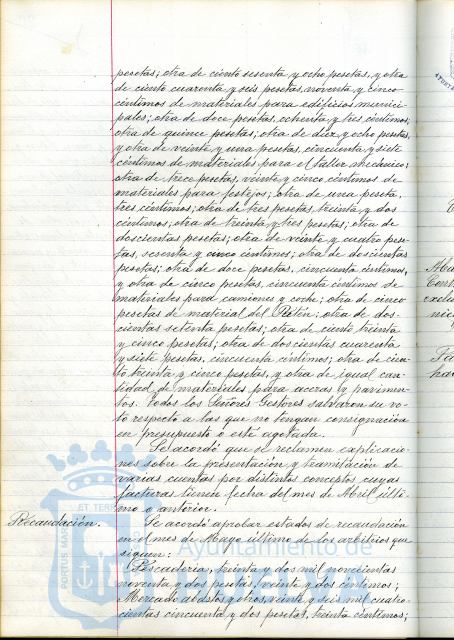 pesetas; otra de ciento sesenta y ocho pesetas, y otra
de ciento cuarenta y seis pesetas, noventa y cinco
céntimos de materiales para edificios munici-
pales; otra de doce pesetas, ochenta y tres céntimos;
otra de quince pesetas; otra de diez y ocho pesetas,
y otra de veinte y una pesetas, cincuenta y siete
céntimos de materiales para el taller mecánico;
otra de trece pesetas, veinte y cinco céntimos de
materiales para festejos; otra de una peseta,
tres céntimos; otra de tres pesetas, treinta y dos
céntimos; otra de treinta y tres pesetas; otra de
doscientas pesetas; otra de veinte y cuatro pese-
tas, sesenta y cinco céntimos; otra de doscientas
pesetas; otra de doce pesetas, cincuenta céntimos,
y otra de cinco pesetas, cincuenta céntimos de
materiales para camiones y coche; otra de cinco
pesetas de material del Retén; otra de dos-
cientas setenta pesetas; otra de ciento treinta
y cinco pesetas; otra de doscientas cuarenta
y siete pesetas, cincuenta céntimos; otra de cien-
to treinta y cinco pesetas, y otra de igual can-
tidad de materiales para aceras y pavimen-
tos. Todos los Señores Gestores salvaron su vo-
to respecto a las que no tengan consignación
en presupuesto o esté agotada.
Se acordó que se reclamen explicacio-
nes sobre la presentación y tramitación de
varias cuentas por distintos conceptos cuyas
facturas tienen fecha del mes de Abril últi-
mo o anterior.
Recaudación. Se acordó aprobar estados de recaudación
en el mes de Mayo último de los arbitrios que
siguen:
Pescadería, treinta y dos mil novecientas
noventa y dos pesetas, veinte y dos céntimos;
Mercado abastos y otros, veinte y seis mil cuatro-
cientas cincuenta y dos pesetas, treinta céntimos;
Ayuntamiento de